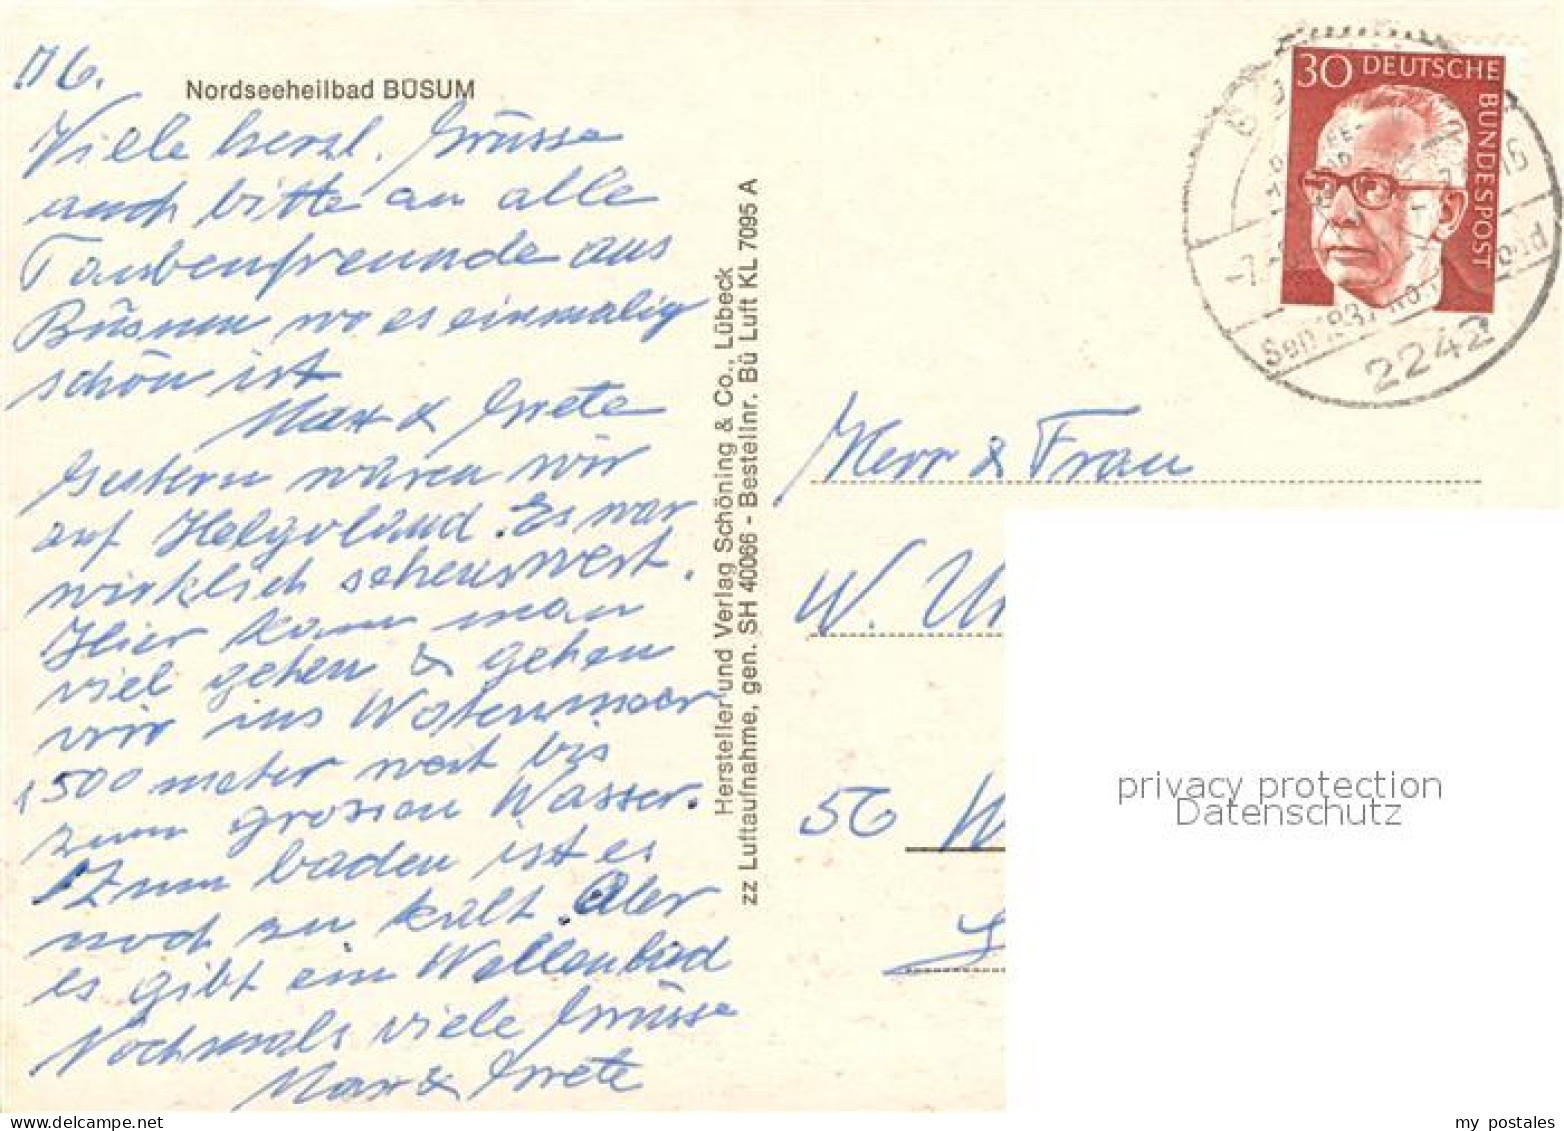 Nordseeheilbad BÜSUM
Viele herzl. Grüsse
auch bitte an alle
Taubenfreunde aus
Büsum wo es einmalig
schön ist
Max & Grete
Gestern waren wir
auf Helgoland. Es war
wirklich sehenswert.
Hier kann man
viel gehen & gehen
wir ins Watenmeer
1500 meter weit bis
zum grossen Wasser.
Zum baden ist es
noch zu kalt. Aber
es gibt ein Wellenbad
Nochmals viele Grüsse
Max & Grete
Hersteller und Verlag Schöning & Co., Lübeck
zz Luftaufnahme, gen. SH 40066 - Bestellnr. Bü Luft KL 7095 A
30 DEUTSCHE
BUNDESPOST
2242
Herr & Frau
W. Un
56 W
privacy protection
Datenschutz
my postales